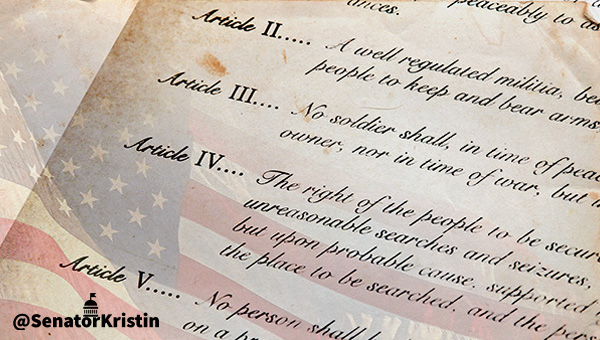 ances.
peaceably to as
Article II.....
A well regulated militia, bei
people to keep and bear arms,
Article III....
No soldier shall, in time of peac
owner, nor in time of war, but in
Article IV....
The right of the people to be secure
unreasonable searches and seizures,
but upon probable cause, supported
the place to be searched, and the pers
Article V.....
No person shall
on a
@SenatorKristin